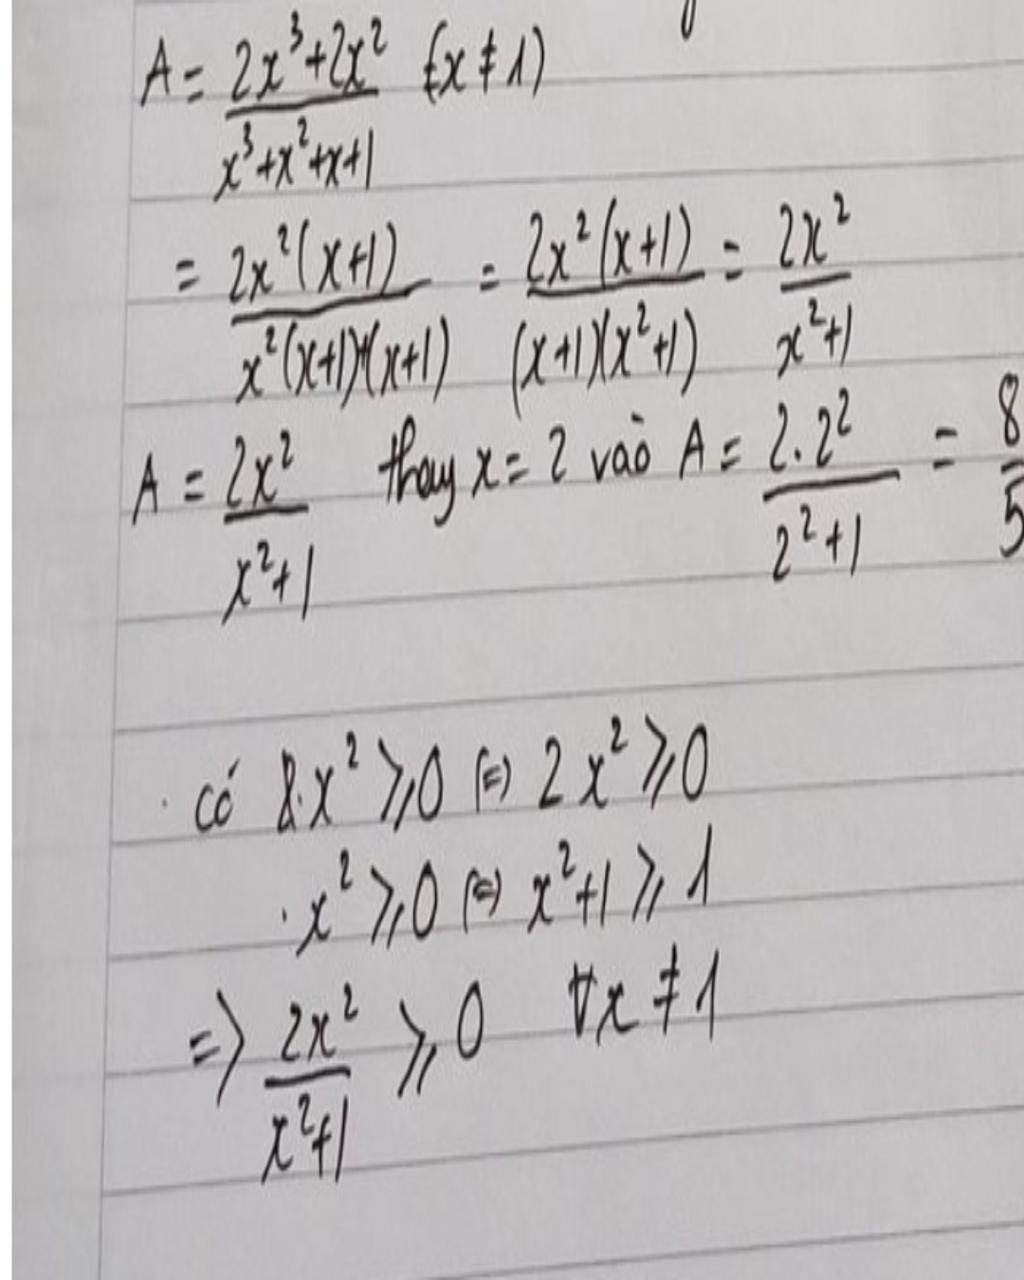 A = (2x³+2x²)/(x³+x²+x+1) (x ≠ 1)
= 2x²(x+1)/(x²(x+1)+(x+1)) = 2x²(x+1)/((x+1)(x²+1)) = 2x²/(x²+1)
A = 2x²/(x²+1) thay x = 2 vào A = 2.2²/(2²+1) = 8/5
. có x² ⩾ 0 (=) 2x² ⩾ 0
. x² ⩾ 0 (=) x²+1 ⩾ 1
=> 2x²/(x²+1) ⩾ 0 ∀x ≠ 1